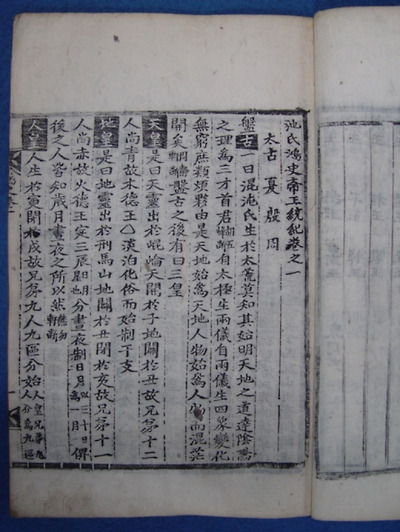 池氏鴻史帝王統紀卷之一
太古 夏 殷 周
盤古 一曰混沌氏生於太荒莫知其始明天地之道達陰陽
之理爲三才首君 自太極生兩儀自兩儀生四象變化
無窮庶類頻夥由是天地始爲天地人物始爲人物而混茫
開矣 盤古之後有曰三皇
天皇 是曰天靈出於崑崙天開於子地闢於丑故兄弟十二
人尚青故木德王 澹泊化俗而始制干支
地皇 是曰地靈出於刑馬山地闢於丑 於亥故兄弟十一
人尚赤故火德王定三辰 分晝夜制日月 以三十日爲一月 俾
後之人皆知歲月晝夜之所以然
人皇 人生於寅開於 成故兄弟九人九區分始 人皇兄弟九人分爲九區